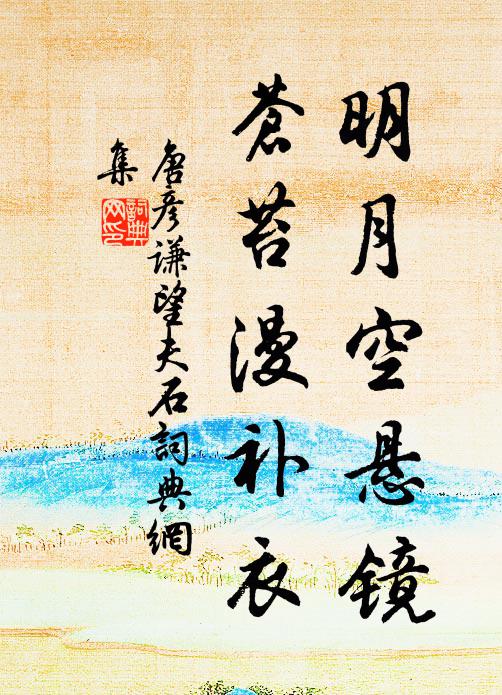 明月空悬镜
苍苔漫补衣
唐彦谦望夫石詞典網
集
詞典网印